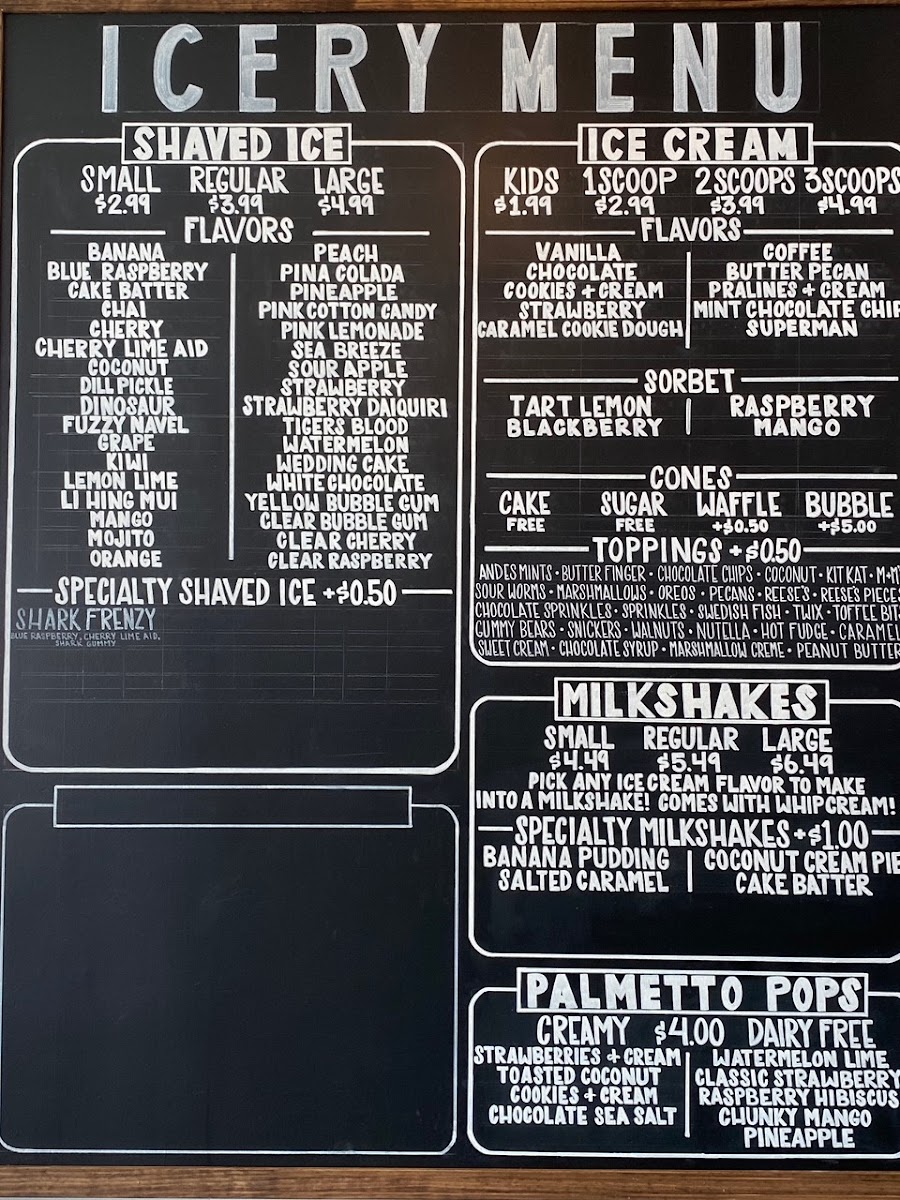 ICERY MENU
SHAVED ICE
SMALL REGULAR LARGE
$2.99 $3.99 $4.99
FLAVORS
BANANA
BLUE RASPBERRY
CAKE BATTER
CHAI
CHERRY
CHERRY LIME AID
COCONUT
DILL PICKLE
DINOSAUR
FUZZY NAVEL
GRAPE
KIWI
LEMON LIME
LI HING MUI
MANGO
MOJITO
ORANGE
PEACH
PINA COLADA
PINEAPPLE
PINK COTTON CANDY
PINK LEMONADE
SEA BREEZE
SOUR APPLE
STRAWBERRY
STRAWBERRY DAIQUIRI
TIGERS BLOOD
WATERMELON
WEDDING CAKE
WHITE CHOCOLATE
YELLOW BUBBLE GUM
CLEAR BUBBLE GUM
CLEAR CHERRY
CLEAR RASPBERRY
SPECIALTY SHAVED ICE +$0.50
SHARK FRENZY
BLUE RASPBERRY, CHERRY LIME AID,
SHARK GUMMY
ICE CREAM
KIDS 1 SCOOP 2 SCOOPS 3 SCOOPS
$1.99 $2.99 $3.99 $4.99
FLAVORS
VANILLA
CHOCOLATE
COOKIES + CREAM
STRAWBERRY
CARAMEL COOKIE DOUGH
COFFEE
BUTTER PECAN
PRALINES + CREAM
MINT CHOCOLATE CHIP
SUPERMAN
SORBET
TART LEMON
BLACKBERRY
RASPBERRY
MANGO
CONES
CAKE SUGAR WAFFLE BUBBLE
FREE FREE +$0.50 +$5.00
TOPPINGS +$0.50
ANDES MINTS • BUTTER FINGER • CHOCOLATE CHIPS • COCONUT • KIT KAT • M+M'
SOUR WORMS • MARSHMALLOWS • OREOS • PECANS • REESE'S • REESE'S PIECES
CHOCOLATE SPRINKLES • SPRINKLES • SWEDISH FISH • TWIX • TOFFEE BIT
GUMMY BEARS • SNICKERS • WALNUTS • NUTELLA • HOT FUDGE • CARAMEL
SWEET CREAM • CHOCOLATE SYRUP • MARSHMALLOW CREME • PEANUT BUTTER
MILKSHAKES
SMALL REGULAR LARGE
$4.49 $5.49 $6.49
PICK ANY ICE CREAM FLAVOR TO MAKE
INTO A MILKSHAKE! COMES WITH WHIPCREAM!
SPECIALTY MILKSHAKES +$1.00
BANANA PUDDING
SALTED CARAMEL
COCONUT CREAM PIE
CAKE BATTER
PALMETTO POPS
CREAMY $4.00 DAIRY FREE
STRAWBERRIES + CREAM
TOASTED COCONUT
COOKIES + CREAM
CHOCOLATE SEA SALT
WATERMELON LIME
CLASSIC STRAWBERRY
RASPBERRY HIBISCUS
CHUNKY MANGO
PINEAPPLE